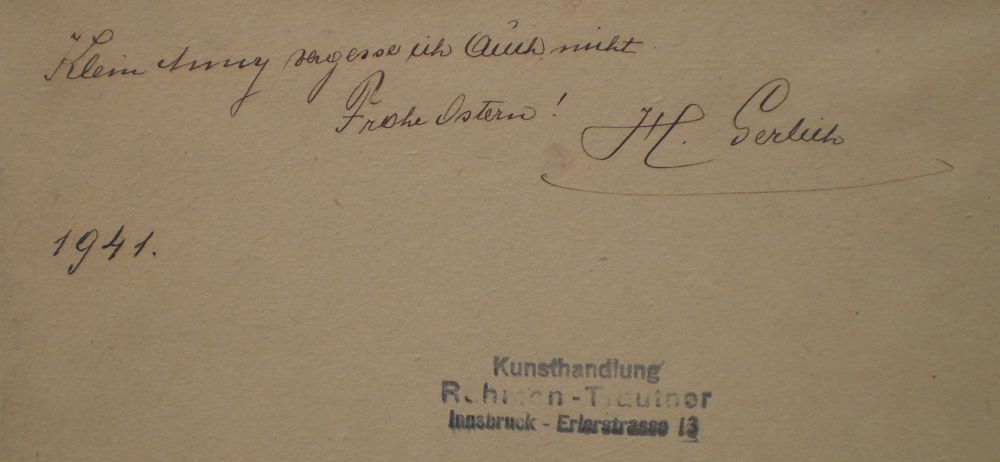 Klein Anny vergesse ich Auch nicht
Frohe Ostern!
H. Gerlich
1941.
Kunsthandlung
Rahmen-Trautner
Innsbruck - Erlerstrasse 13